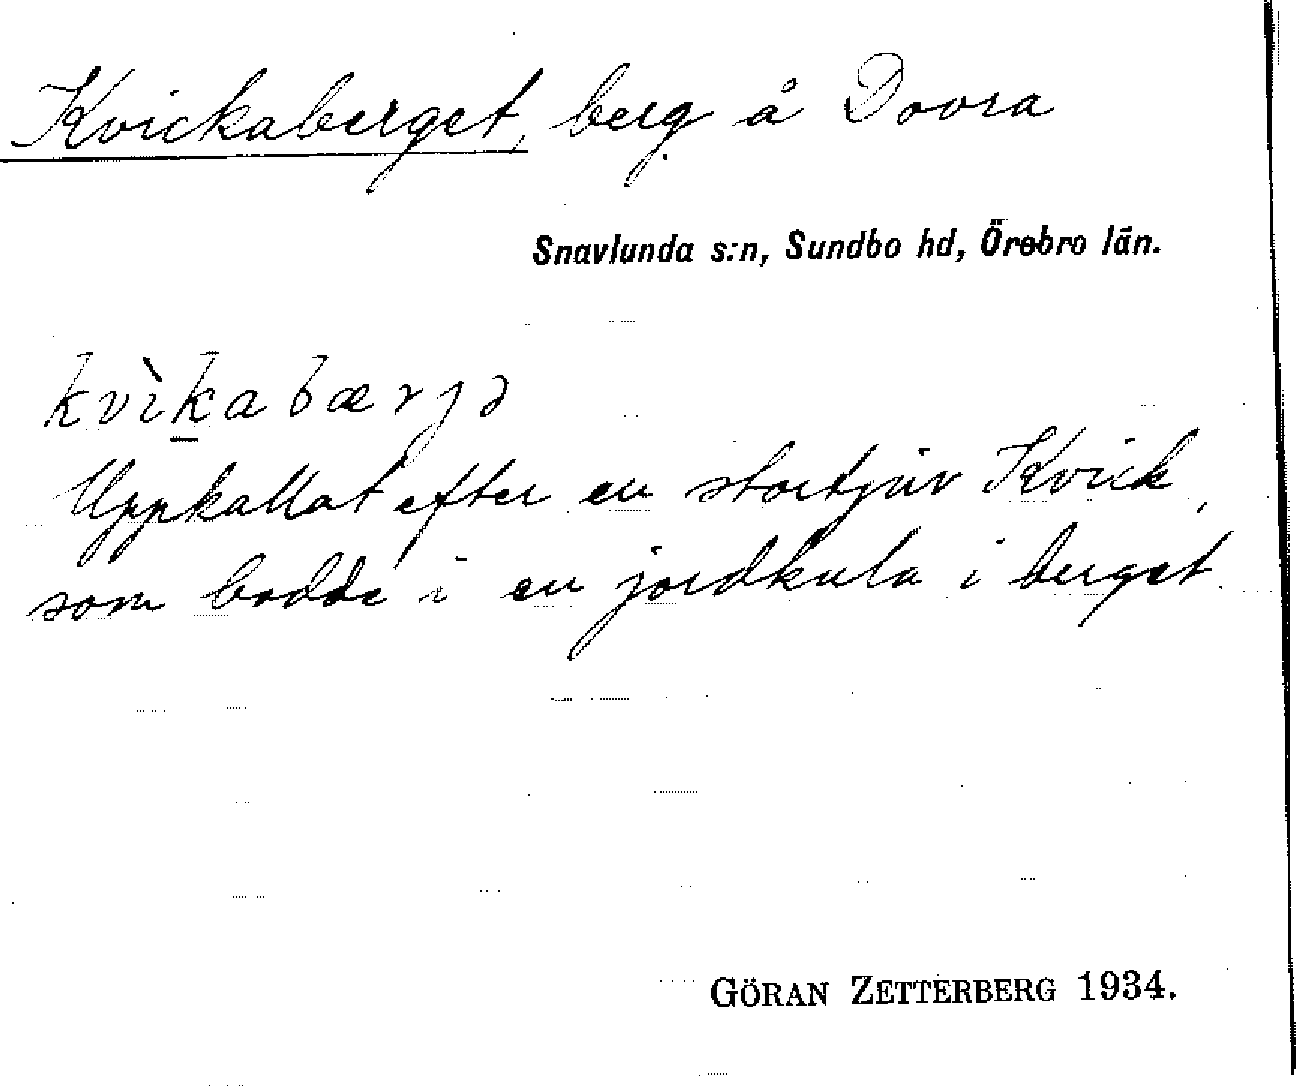 Kvickaberget, berg å Dovra
Snavlunda s:n, Sundbo hd, Örebro län.
kvìkabærjə
Uppkallat efter en stortjuv Kvick,
som bodde i en jordkula i berget.
GÖRAN ZETTERBERG 1934.